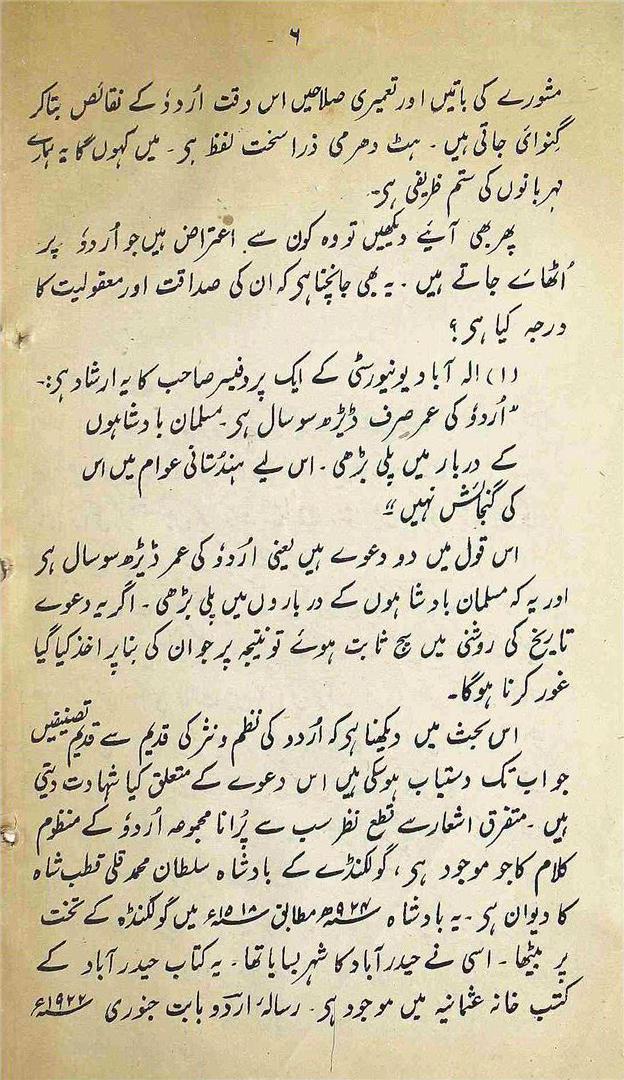 ۶
مشورے کی باتیں اور تعمیری صلاحیں اس وقت اُردؤ کے نقائص بتا کر
گِنوائ جاتی ہیں ۔ ہٹ دھرمی ذرا سخت لفظ ہی ۔ میں کہوں گا یہ ہمارے
مہربانوں کی ستم ظریفی ہی۔
پھر بھی آئیے دیکھیں تو وہ کون سے اعتراض ہیں جو اُردؤ پر
اُٹھائے جاتے ہیں ۔ یہ بھی جانچنا ہی کہ ان کی صداقت اور معقولیت کا
درجہ کیا ہی ؟
(۱) الہ آباد یونیورسٹی کے ایک پروفیسر صاحب کا یہ ارشاد ہی:۔
"اُردؤ کی عمر صرف ڈیڑھ سو سال ہی۔ مسلمان بادشاہوں
کے دربار میں پلی بڑھی ۔ اس لیے ہندُستانی عوام میں اس
کی گنجائش نہیں"
اس قول میں دو دعوے ہیں یعنی اُردؤ کی عمر ڈیڑھ سو سال ہی
اور یہ کہ مسلمان بادشاہوں کے درباروں میں پلی بڑھی ۔ اگر یہ دعوے
تاریخ کی روشنی میں سچ ثابت ہوئے تو نتیجہ پر جو ان کی بنا پر اخذ کیا گیا
غور کرنا ہوگا۔
اس بحث میں دیکھنا ہی کہ اُردو کی نظم و نثر کی قدیم سے قدیم تصنیفیں
جو اب تک دستیاب ہوسکی ہیں اس دعوے کے متعلق کیا شہادت دیتی
ہیں ۔ متفرق اشعار سے قطع نظر سب سے پُرانا مجموعہ اُردؤ کے منظوم
کلام کا جو موجود ہی ، گولکنڈے کے بادشاہ سلطان محمد قلی قطب شاہ
کا دیوان ہی ۔ یہ بادشاہ سنہ ۹۲۴ھ مطابق سنہ ۱۵۱۸ء میں گولکنڈہ کے تخت
پر بیٹھا ۔ اسی نے حیدرآباد کا شہر بسایا تھا ۔ یہ کتاب حیدرآباد کے
کتب خانہ عثمانیہ میں موجود ہی۔ رسالہ اردو بابت جنوری سنہ ۱۹۲۲ء